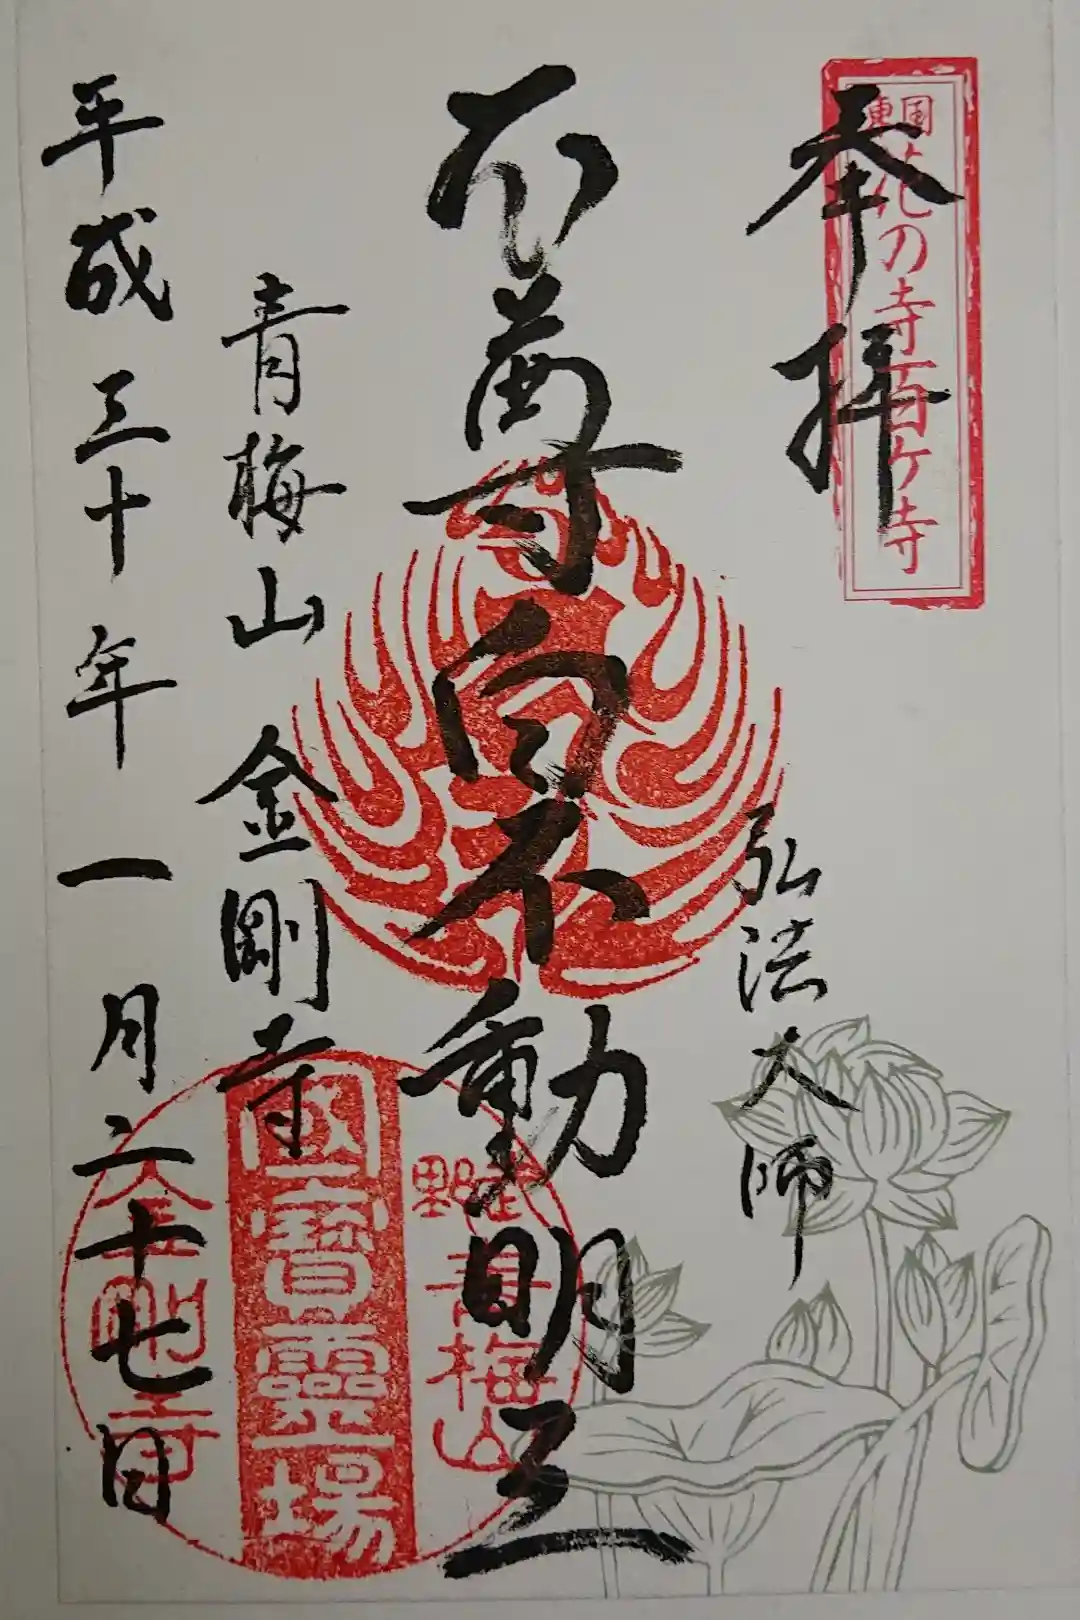 東国花の寺百ヶ寺
奉拝
弘法大師
本尊白不動明王
青梅山 金剛寺
平成三十年一月二十七日
武野青梅山
國寶靈場
金剛寺